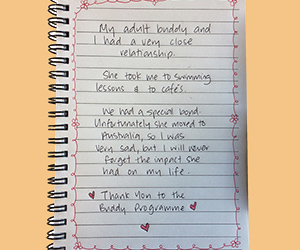 My adult buddy and
I had a very close
relationship.
She took me to swimming
lessons & to cafés.
We had a special bond.
Unfortunately she moved to
Australia, so I was
very sad, but I will never
forget the impact she
had on my life.
Thank You to the
Buddy Programme